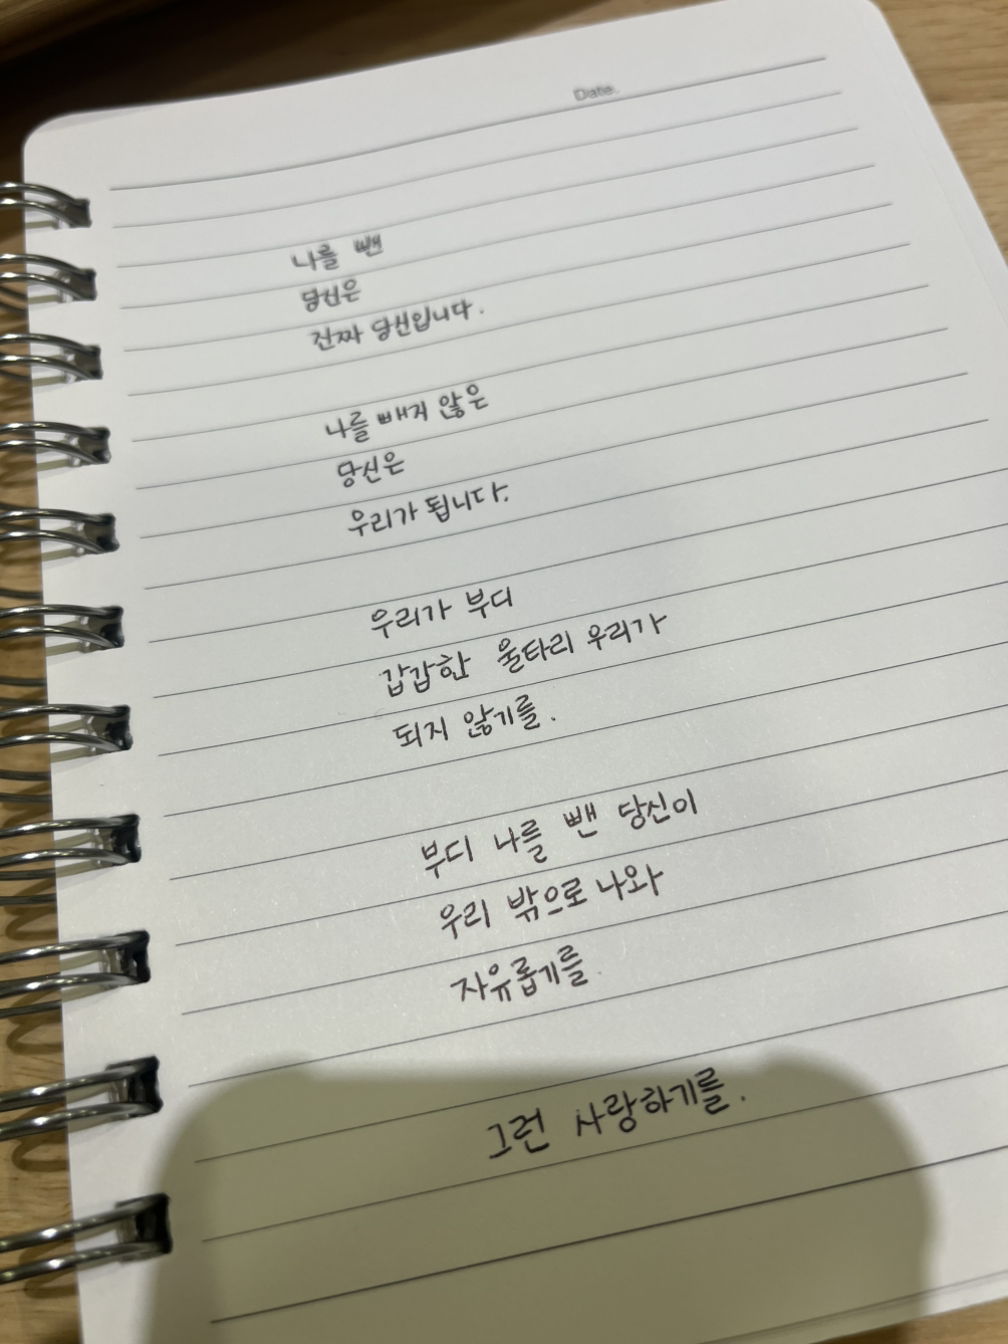 Date.
나를 뺀
당신은
진짜 당신입니다.
나를 빼지 않은
당신은
우리가 됩니다.
우리가 부디
갑갑한 울타리 우리가
되지 않기를.
부디 나를 뺀 당신이
우리 밖으로 나와
자유롭기를.
그런 사랑하기를.